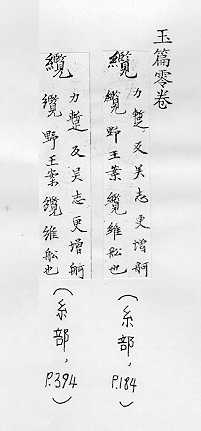 玉篇零卷
纜 力蹔反吴志更增舸
纜野王案纜維舩也
(糸部,P.184)
纜 力蹔反吴志更增舸
纜野王案纜維舩也
(糸部,P.394)